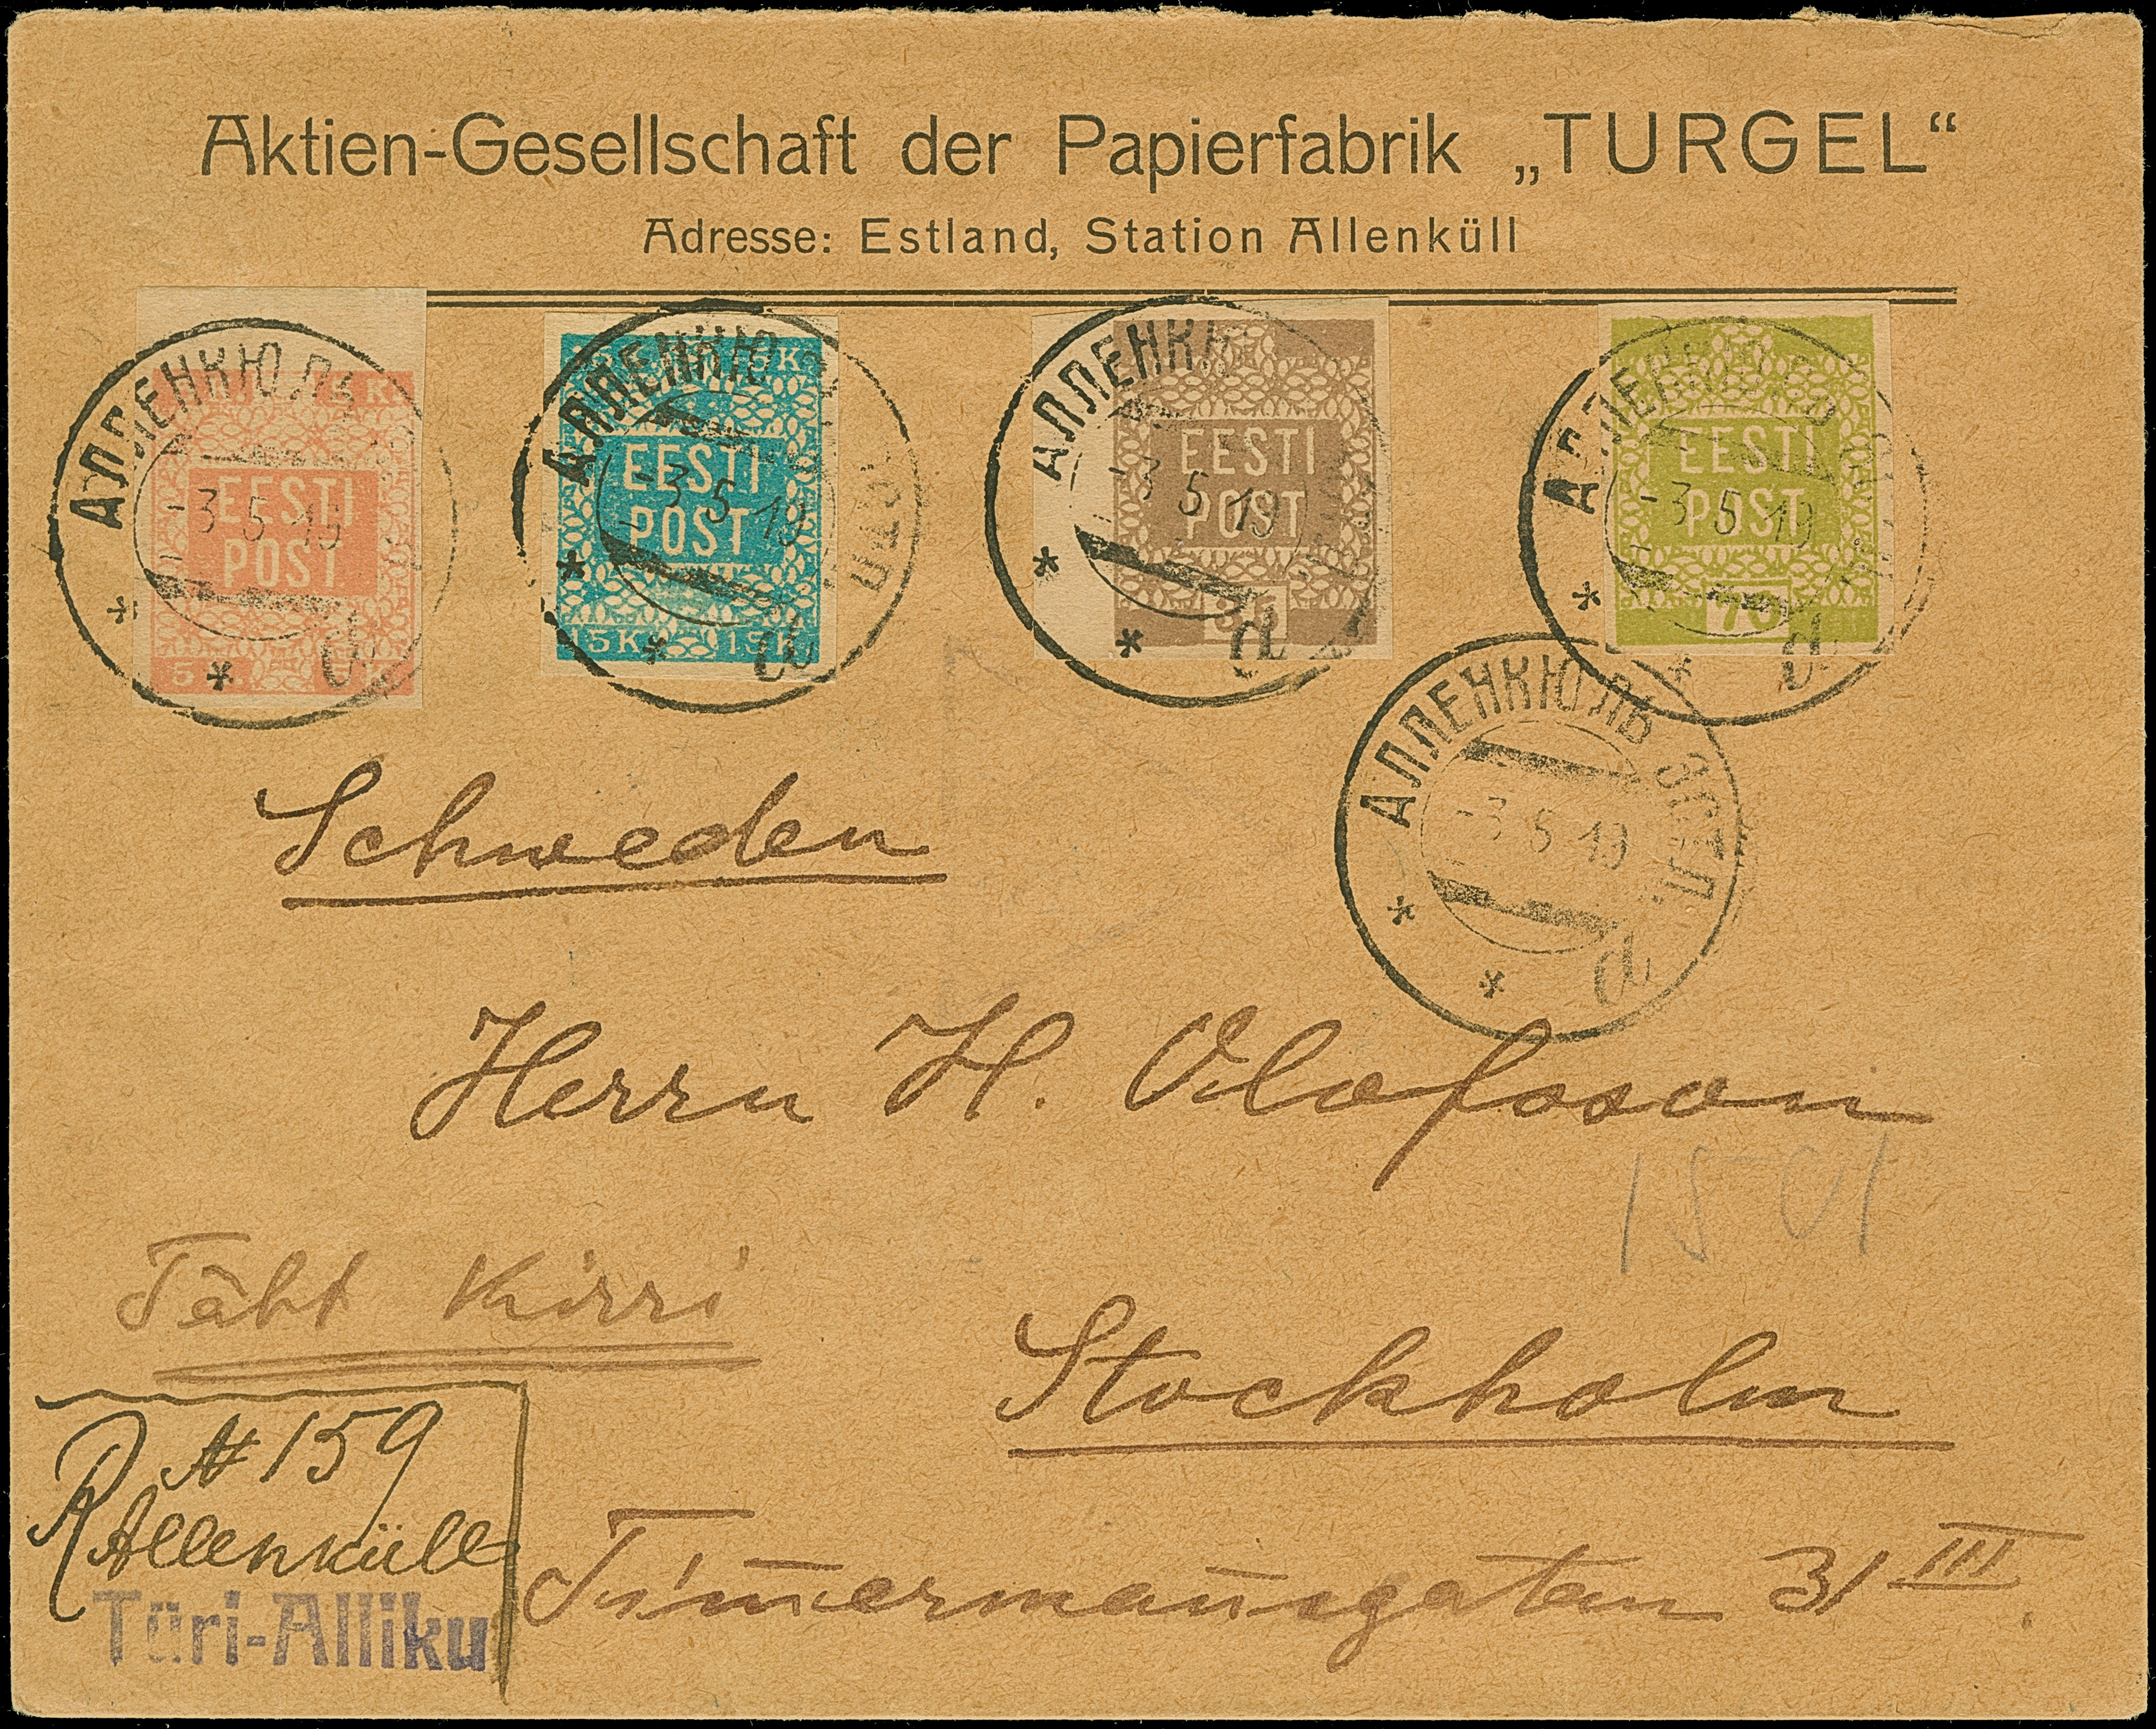 Aktien-Gesellschaft der Papierfabrik „TURGEL“
Adresse: Estland, Station Allenküll
АЛЛЕНКЮЛЬ
-3 5 19
EESTI
POST
АЛЛЕНКЮ
-3 5 19
EESTI
POST
15K 15K
АЛЛЕНК
-3 5 19
EESTI
POST
35
АЛЛЕНКЮ
-3 5 19
EESTI
POST
70
АЛЛЕНКЮЛЬ ЭСТЛ.
-3 5 19
Schweden
Herrn H. Olofsson
1501
Täht Kirri
Stockholm
R № 159
Allenküll
Türi-Alliku
Tim̄erman̄sgatan 31 III.